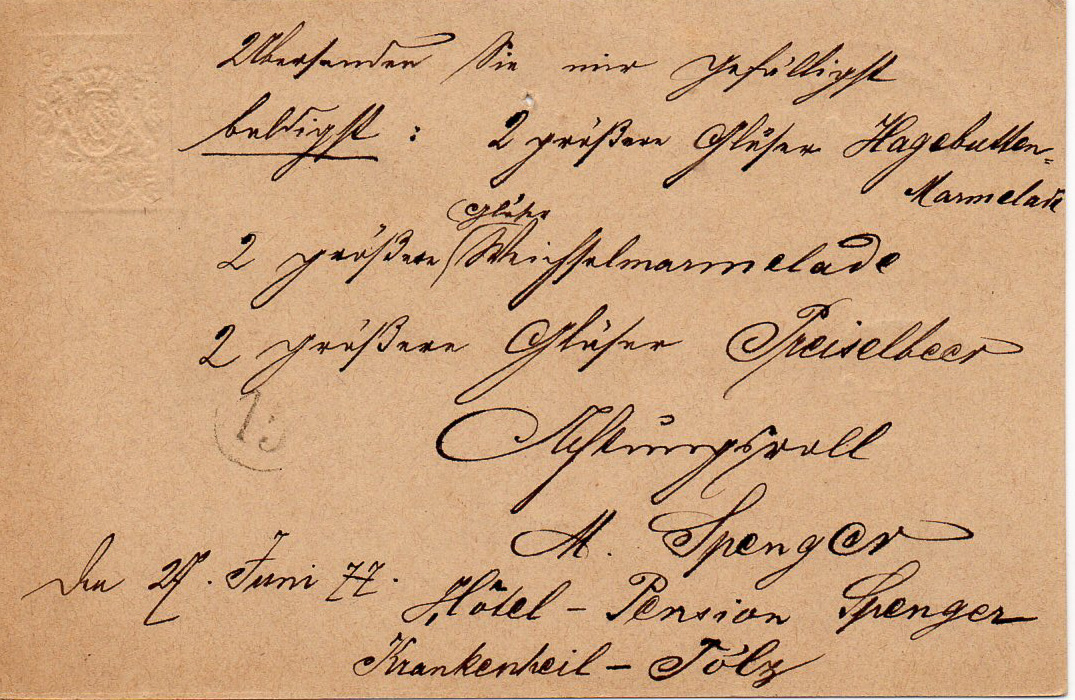 Übersenden Sie mir gefälligst
baldigst : 2 größere Gläser Hagebutten=
Marmelade
Gläser
2 größere Weichselmarmelade
2 größere Gläser Preiselbeer
Achtungsvoll
M. Spenger
Den 27. Juni 77.
Hôtel - Pension Spenger
Krankenheil - Tölz